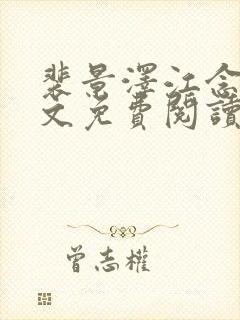 裴景澤江念
文免費閱讀
曾志權